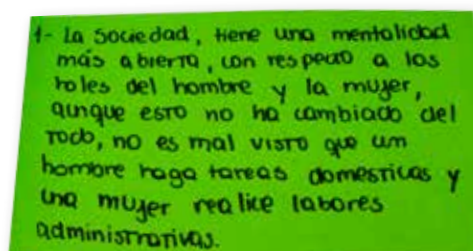 1- La sociedad, tiene una mentalidad
más abierta, con respecto a los
roles del hombre y la mujer,
aunque esto no ha cambiado del
todo, no es mal visto que un
hombre haga tareas domésticas y
una mujer realice labores
administrativas.